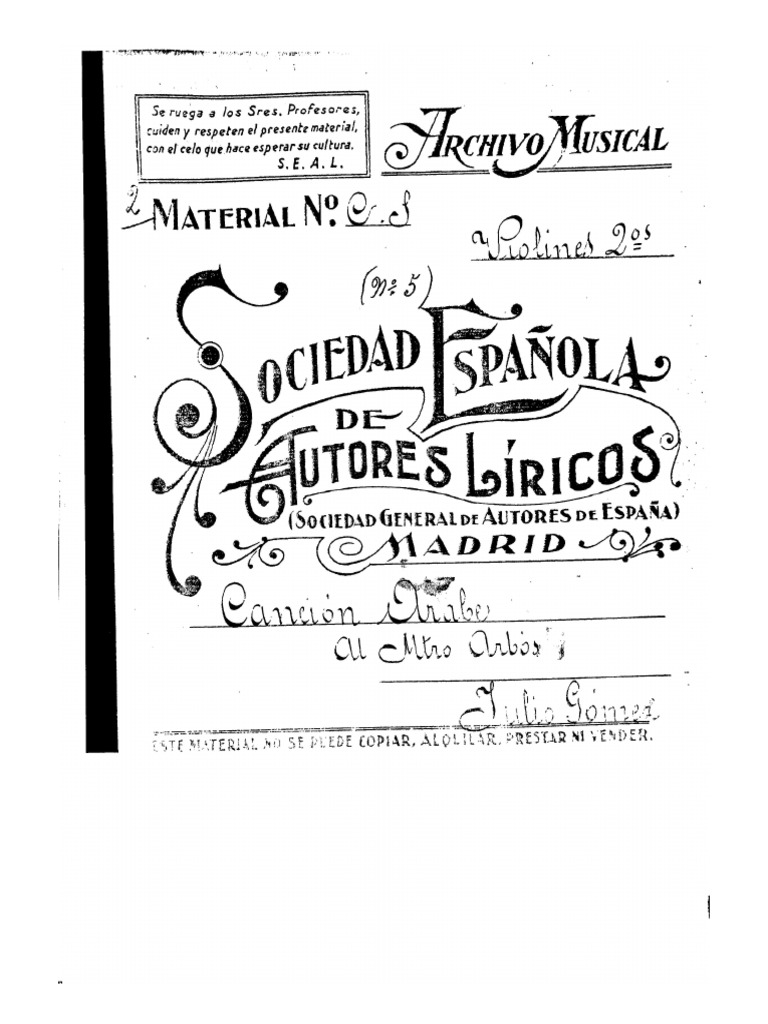 Se ruega a los Sres. Profesores,
cuiden y respeten el presente material,
con el celo que hace esperar su cultura.
S. E. A. L.
ARCHIVO MUSICAL
2
MATERIAL Nº. C. S
Violines 2os
(Nº 5)
SOCIEDAD ESPAÑOLA
DE
AUTORES LÍRICOS
(SOCIEDAD GENERAL DE AUTORES DE ESPAÑA)
MADRID
Canción Arabe
Al Mtro Arbós
Julio Gómez
ESTE MATERIAL NO SE PUEDE COPIAR, ALQUILAR, PRESTAR NI VENDER.